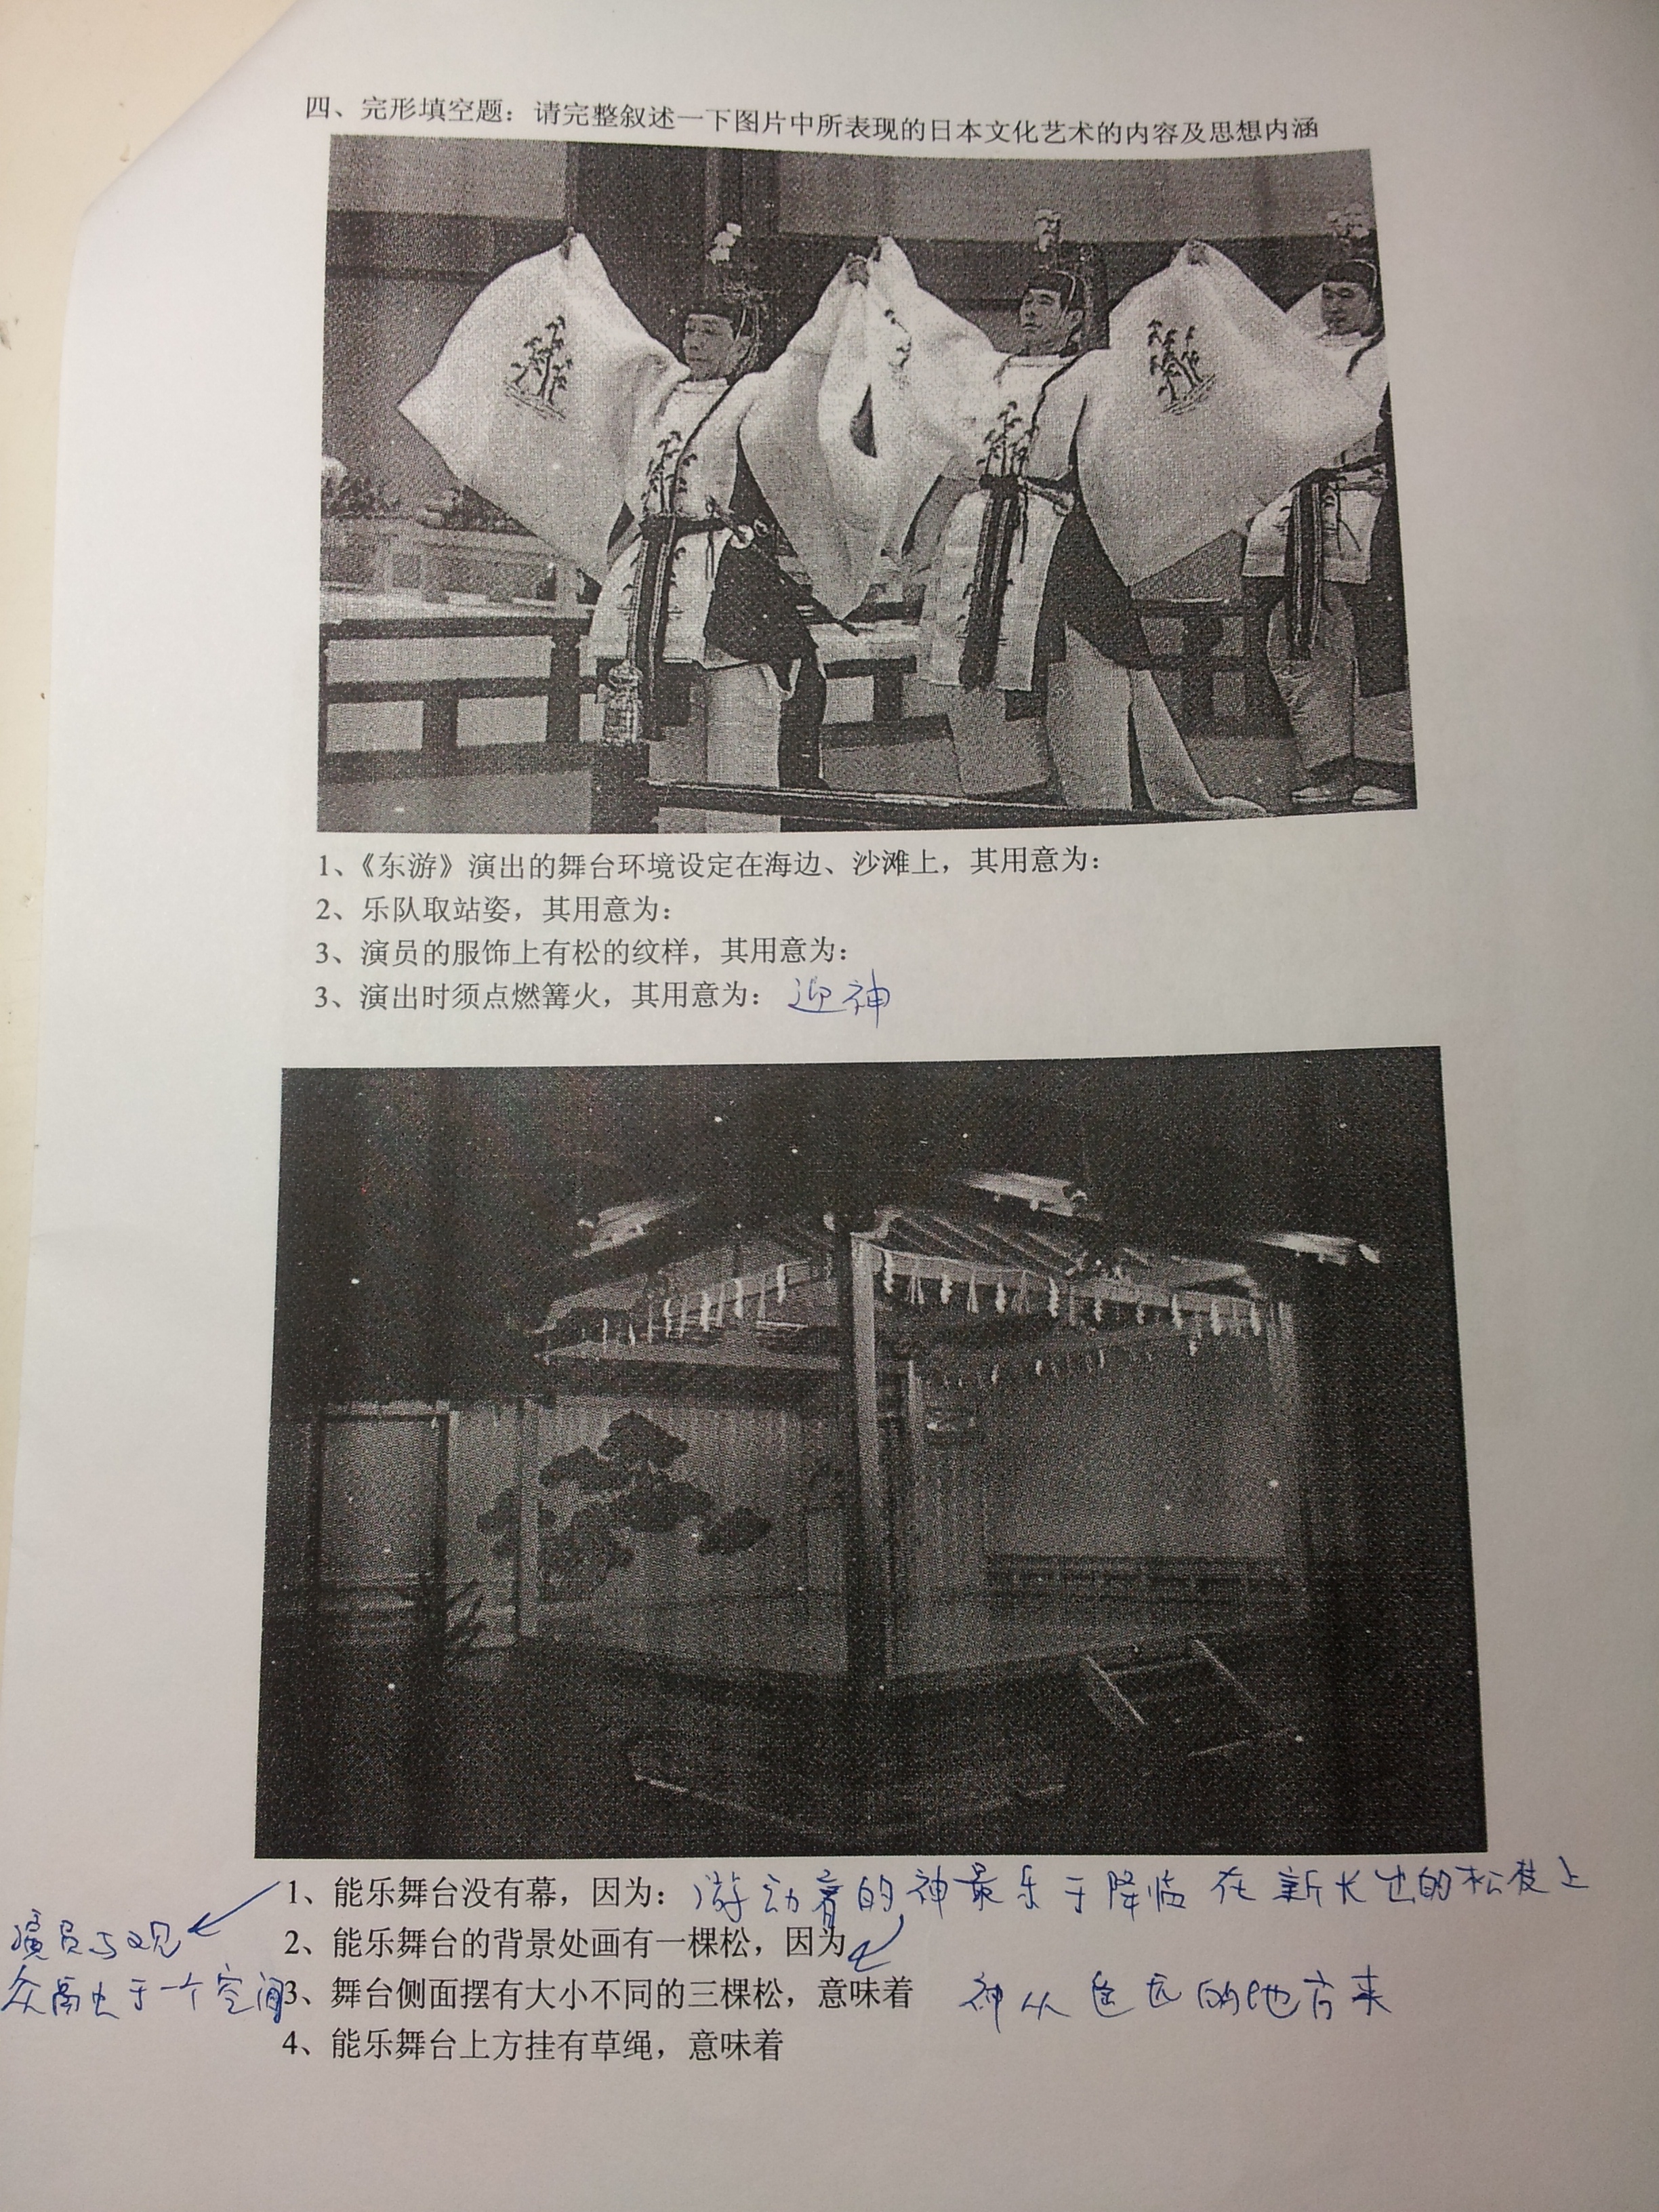 四、完形填空题：请完整叙述一下图片中所表现的日本文化艺术的内容及思想内涵
1、《东游》演出的舞台环境设定在海边、沙滩上，其用意为：
2、乐队取站姿，其用意为：
3、演员的服饰上有松的纹样，其用意为：
3、演出时须点燃篝火，其用意为：迎神
1、能乐舞台没有幕，因为：游动着的神最乐于降临在新长出的松枝上
演员与观
2、能乐舞台的背景处画有一棵松，因为
众需出于一个空间
3、舞台侧面摆有大小不同的三棵松，意味着 神从遥远的地方来
4、能乐舞台上方挂有草绳，意味着